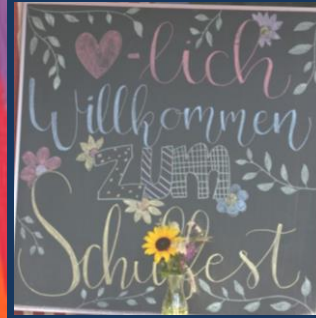 ♥-lich
Willkommen
zum
Schulfest